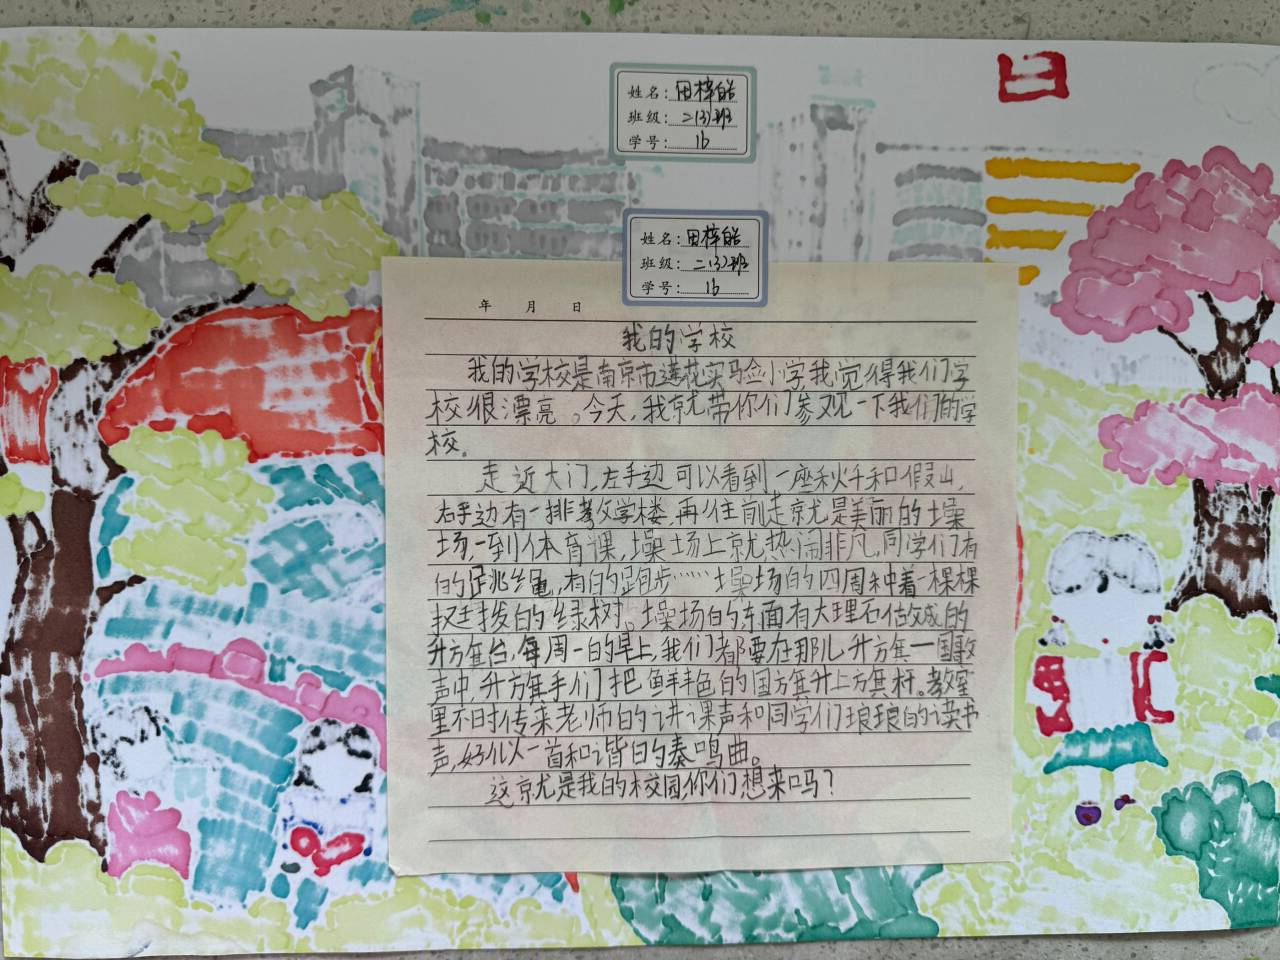 姓名：田梓皓
班级：二（3）班
学号：16
姓名：田梓皓
班级：二（3）班
学号：16
年 月 日
我的学校
我的学校是南京市莲花实验小学，我觉得我们学
校很漂亮。今天，我就带你们参观一下我们的学
校。
走近大门，左手边可以看到一座秋千和假山，
右手边有一排教学楼，再往前走就是美丽的操
场，一到体育课，操场上就热闹非凡，同学们有
的跳绳，有的跑步……操场的四周种着一棵棵
挺拔的绿树。操场的东面有大理石做成的
升旗台，每周一的早上，我们都要在那儿升旗，国歌
声中，升旗手们把鲜艳的国旗升上旗杆。教室
里不时传来老师的讲课声和同学们琅琅的读书
声，好似一首和谐的奏鸣曲。
这就是我的校园，你们想来吗？